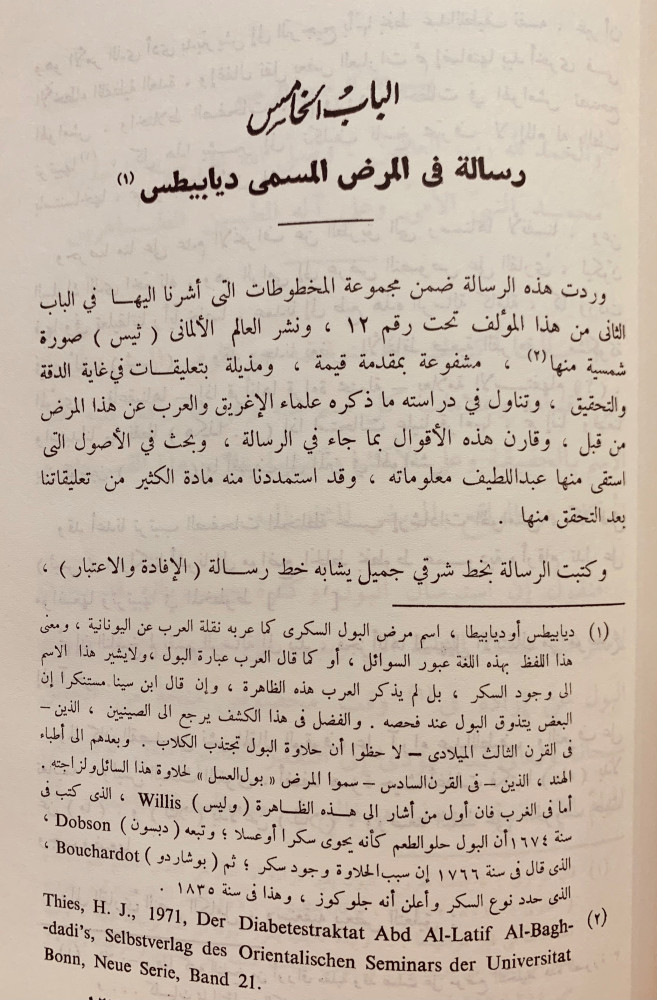 الباب الخامس
رسالة فى المرض المسمى ديابيطس (١)
وردت هذه الرسالة ضمن مجموعة المخطوطات التى أشرنا اليهـا في الباب
الثانى من هذا المؤلف تحت رقم ١٢ ، ونشر العالم الألمانى ( ثيس ) صورة
شمسية منها(٢) ، مشفوعة بمقدمة قيمة ، ومذيلة بتعليقـات في غاية الدقة
والتحقيق ، وتناول في دراسته ما ذكره علماء الإغريق والعرب عن هذا المرض
من قبل ، وقارن هذه الأقوال بما جاء في الرسالة ، وبحث في الأصول التى
استقى منها عبداللطيف معلوماته ، وقد استمددنا منه مادة الكثير من تعليقاتنا
بعد التحقق منها .
وكتبت الرسالة بخط شرقي جميل يشابه خط رسـالة ( الإفادة والاعتبار ) ،
(١) ديابيطس أو ديابيطا ، اسم مرض البول السكرى كما عربه نقلة العرب عن اليونانية ، ومعنى
هذا اللفظ بهذه اللغة عبور السوائل ، أو كما قال العرب عبارة البول ، ولايشير هذا الاسم
الى وجود السكر ، بل لم يذكر العرب هذه الظاهرة ، وإن قال ابن سينا مستنكرا إن
البعض يتذوق البول عند فحصه . والفضل فى هذا الكشف يرجع الى الصينيين ، الذين –
فى القرن الثالث الميلادى – لا حظوا أن حلاوة البول تجتذب الكلاب . وبعدهم الى أطباء
الهند ، الذين – فى القرن السادس – سموا المرض « بول العسل » لحلاوة هذا السائل ولزاجته .
أما فى الغرب فان أول من أشار الى هـذه الظـاهرة ( وليس ) Willis ، الذى كتب فى
سنة ١٦٧٤ أن البول حلو الطعم كأنه يحوى سكرا أو عسلا ؛ وتبعه ( دبسون ) Dobson ،
الذى قال فى سنة ١٧٦٦ إن سبب الحلاوة وجود سكر ؛ ثم ( بوشاردو ) Bouchardot ،
الذى حدد نوع السكر وأعلن أنه جلوكوز ، وهذا فى سنة ١٨٣٥ .
(٢) Thies, H. J., 1971, Der Diabetestraktat Abd Al-Latif Al-Bagh-
-dadi's, Selbstverlag des Orientalischen Seminars der Universitat
Bonn, Neue Serie, Band 21.